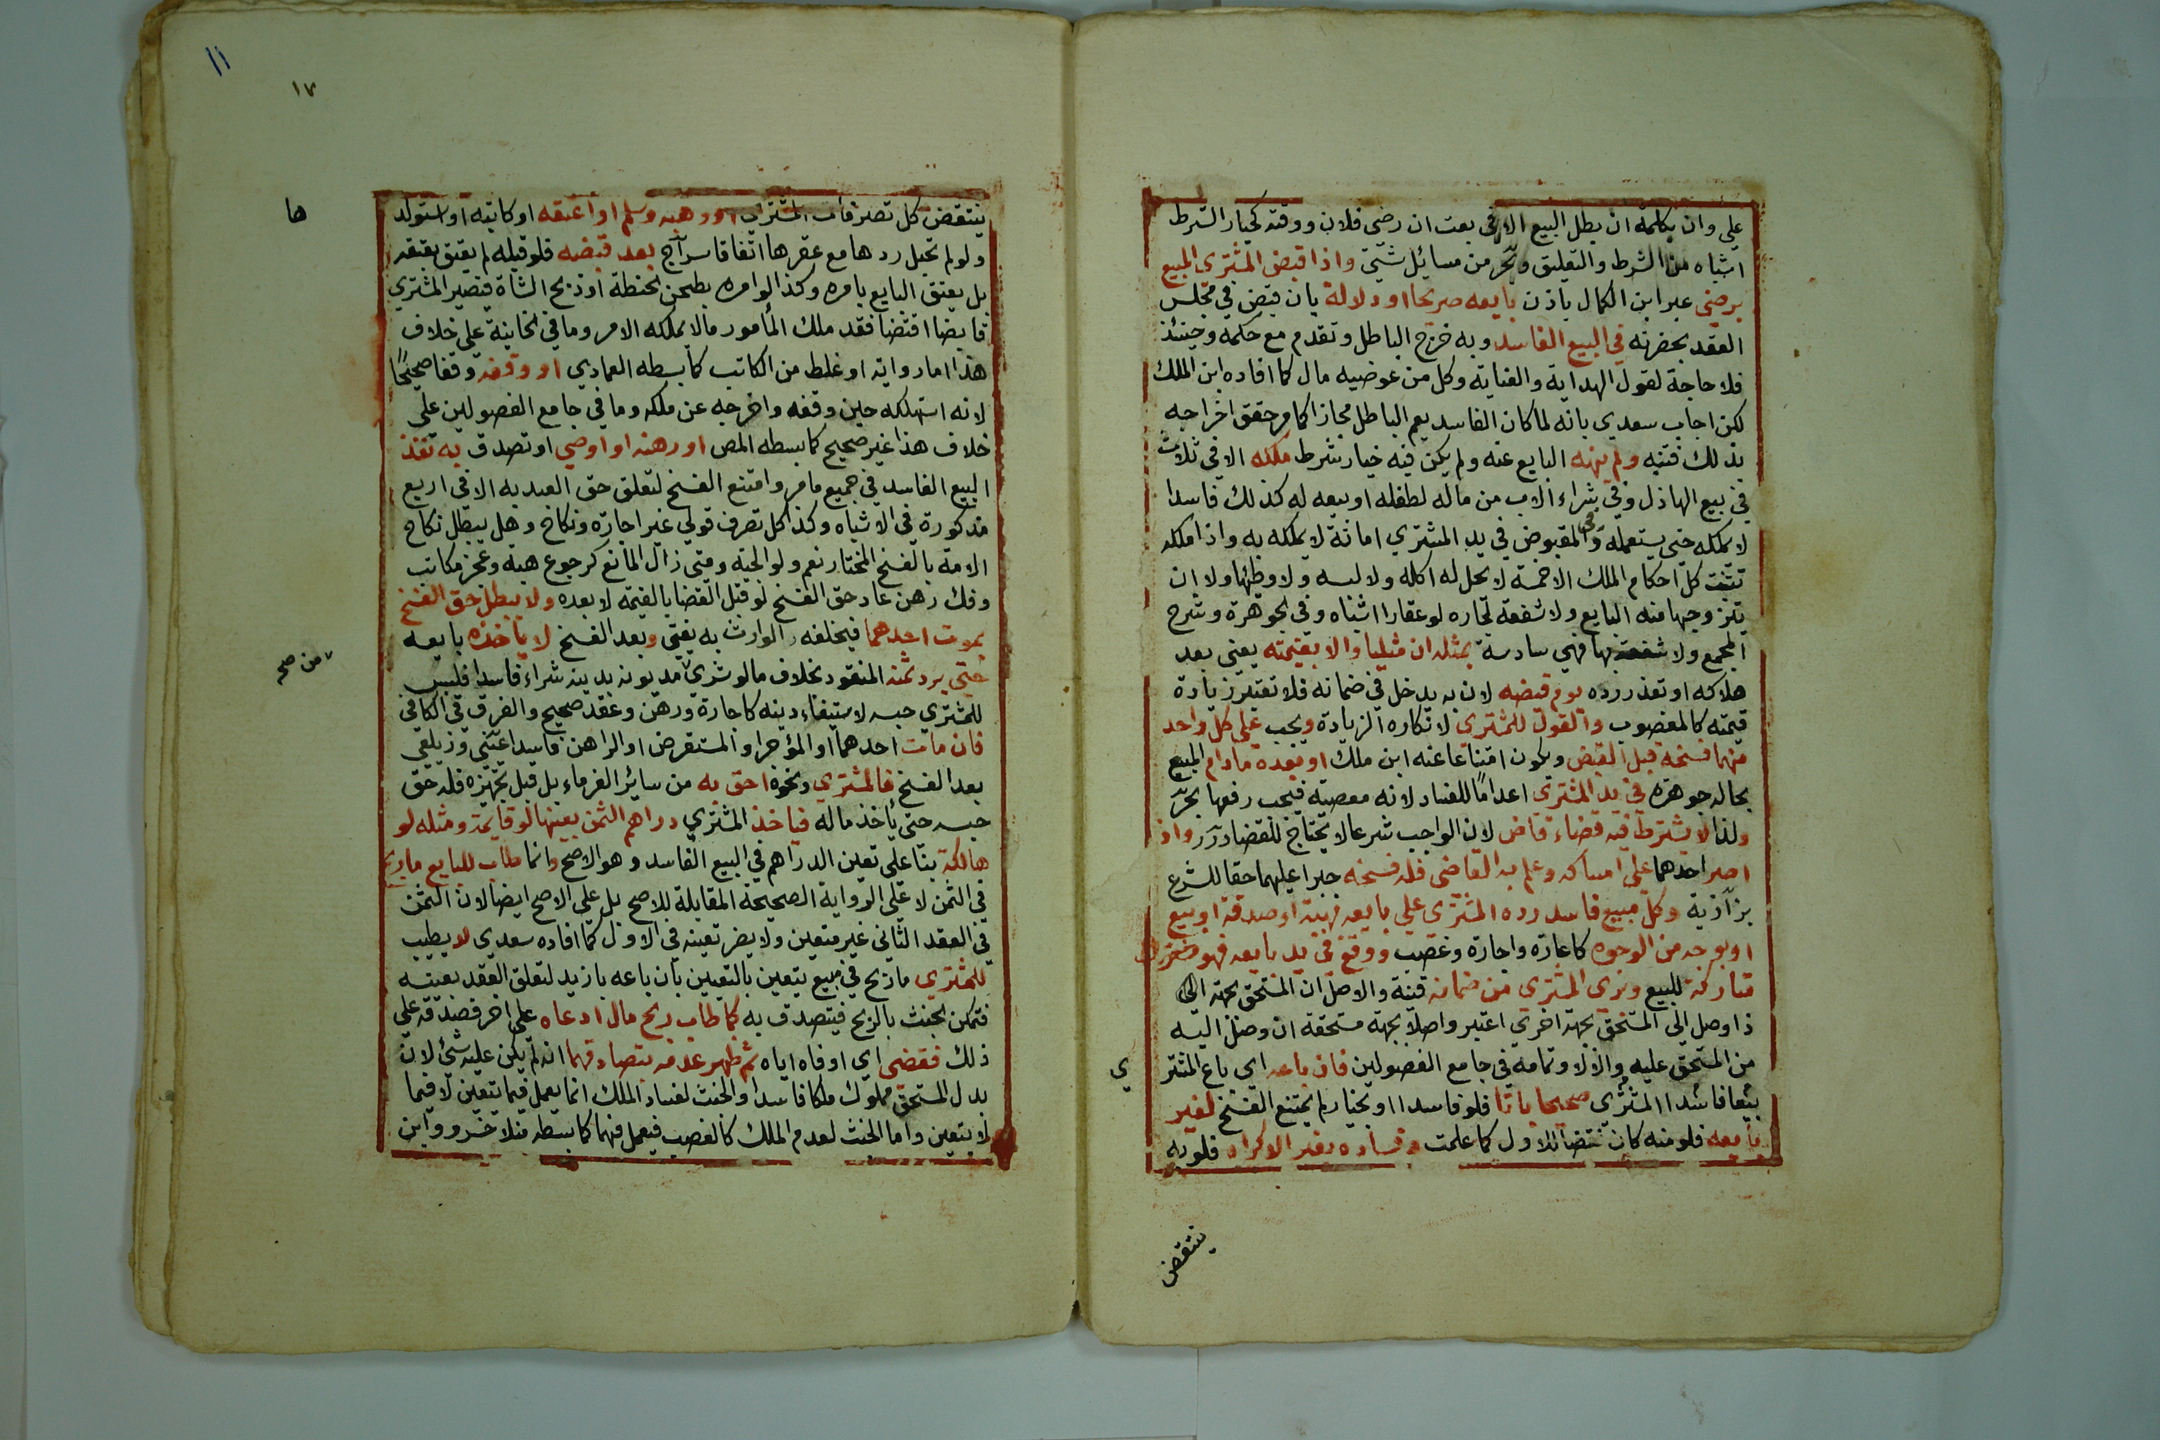 علي وان بكلمة ان بطل البيع الا في بعت ان رضي فلان ووقته كخيار الشرط
اشباه من الشرط والتعليق وبحر من مسائل شتي واذا قبض المشتري المبيع
برضي عبر ابن الكمال باذن بايعه صريحا او دلالة بان قبض في مجلس
العقد بحضرته في البيع الفاسد وبه خرج الباطل وتقدم مع حكمه وحينئذ
فلا حاجة لقول الهداية والعناية وكل من عوضيه مال كما افاده ابن الملك
لكن اجاب سعدي بانه لما كان الفاسد يعم الباطل مجازا كما مر حقق اخراجه
بذلك فتنبه ولم ينهه البايع عنه ولم يكن فيه خيار شرط ملكه الا في ثلاث
في بيع الهازل وفي شراء الاب من ماله لطفله او بيعه له كذلك فاسدا
لا يملكه حتى يستعمله وفي المقبوض في يد المشتري امانة لا يملكه به واذا ملكه
تثبت كل احكام الملك الا خمسة لا يحل له اكله ولا لبسه ولا وطئها ولا ان
يتزوجها منه البايع ولا شفعة لجاره لو عقارا اشباه وفي الجوهرة وشرح
المجمع ولا شفعة بها فهي سادسة بمثله ان مثليا والا بقيمته يعني بعد
هلاكه او تعذر رده يوم قبضه لان به يدخل في ضمانه فلا تعتبر زيادة
قيمته كالمغصوب والقول للمشتري لانكاره الزيادة ويجب علي كل واحد
منهما فسخه قبل القبض ويكون امتناعا عنه ابن ملك او بعده مادام المبيع
بحاله جوهره في يد المشتري اعداما للفساد لانه معصية فيجب رفعها بحر
ولذا لا يشترط فيه قضاء قاض لان الواجب شرعا لا يحتاج للقضا درر واذ
اصر احدهما علي امساكه وعلم به القاضي فله فسخه جبرا عليهما حقا للشرع
بزازية وكل مبيع فاسد رده المشتري علي بايعه بهبة او صدقة او بيع
او بوجه من الوجوه كاعارة واجارة وغصب ووقع في يد بايعه فهو
متاركة للبيع وبري المشتري من ضمانه قنية والاصل ان المستحق بجهة الي
ذا وصل الي المستحق بجهة اخري اعتبر واصلا بجهة مستحقة ان وصل اليه
من المستحق عليه والا لا وتمامه في جامع الفصولين فان باعه اي باع المشتر
ي
بيعا فاسدا المشتري صحيحا باتا فلو فاسدا او بخيار لم يمتنع الفسخ لغير
بايعه فلو منه كان نقضا للاول كما علمت وفساده بغير الاكراه فلو به
ينتقض
١١
١٧
ينتقض كل تصرفات المشتري او وهبه وسلم او اعتقه او كاتبه او استولد
ها
ولو لم تحبل ردها مع عقرها اتفاقا سراج بعد قبضه فلو قبله لم يعتق بعتقه
بل يعتق البايع بامره وكذا لو امره بطحن الحنطة او ذبح الشاة فيصير المشتري
قابضا اقتضا فقد ملك المأمور مالا يملكه الامر وما في الخانية علي خلاف
هذا اما رواية او غلط من الكاتب كما بسطه العمادي او وقفه وقفا صحيحا
لانه استهلكه حين وقفه واخرجه عن ملكه وما في جامع الفصولين علي
خلاف هذا غير صحيح كما بسطه المص او رهنه او اوصي او تصدق به نفذ
البيع الفاسد في جميع ما مر وامتنع الفسخ لتعلق حق العبد به الا في اربع
مذكورة في الاشباه وكذا كل تصرف قولي غير اجارة ونكاح وهل يبطل نكاح
الامة بالفسخ المختار نعم ولوالجية ومتى زال المانع كرجوع هبة وعجز مكاتب
وفك رهن عاد حق الفسخ لو قبل القضا بالقيمة لا بعده ولا يبطل حق الفسخ
بموت احدهما فيخلفه الوارث به يفتي وبعد الفسخ لا يأخذه بايعه
حتي يرد ثمنه المنقود بخلاف ما لو شري مديونه بدينه شراء فاسدا فليس
من صح
للمشتري حبسه لاستيفاء دينه كاجارة ورهن وعقد صحيح والفرق في الكافي
فان مات احدهما او المؤجر او المستقرض او الراهن فاسدا عيني وزيلعي
بعد الفسخ فالمشتري ونحوه احق به من سائر الغرماء بل قبل تجهيزه فله حق
حبسه حتى يأخذ ماله فيأخذ المشتري دراهم الثمن بعينها لو قايمة ومثله لو
هالكة بنا علي تعين الدراهم في البيع الفاسد وهو الاصح وانما طاب للبايع ما ربح
في الثمن لا علي الرواية الصحيحة المقابلة للاصح بل علي الاصح ايضا لان الثمن
في العقد الثاني غير متعين ولا يضر تعينه في الاول كما افاده سعدي لا يطيب
للمشتري ما ربح في مبيع يتعين بالتعيين بان باعه بازيد لتعلق العقد بعينه
فتمكن الخبث بالربح فيتصدق به كما طاب ربح مال ادعاه علي اخر فصدقه علي
ذلك فقضي اي اوفاه اياه ثم ظهر عدمه بتصادقهما انه لم يكن عليه شئ لان
بدل المستحق مملوك ملكا فاسدا والخبث لفساد الملك انما يعمل فيما يتعين لا فيما
لا يتعين واما الخبث لعدم الملك كالغصب فيعمل فيهما كما بسطه منلا خسرو وابن